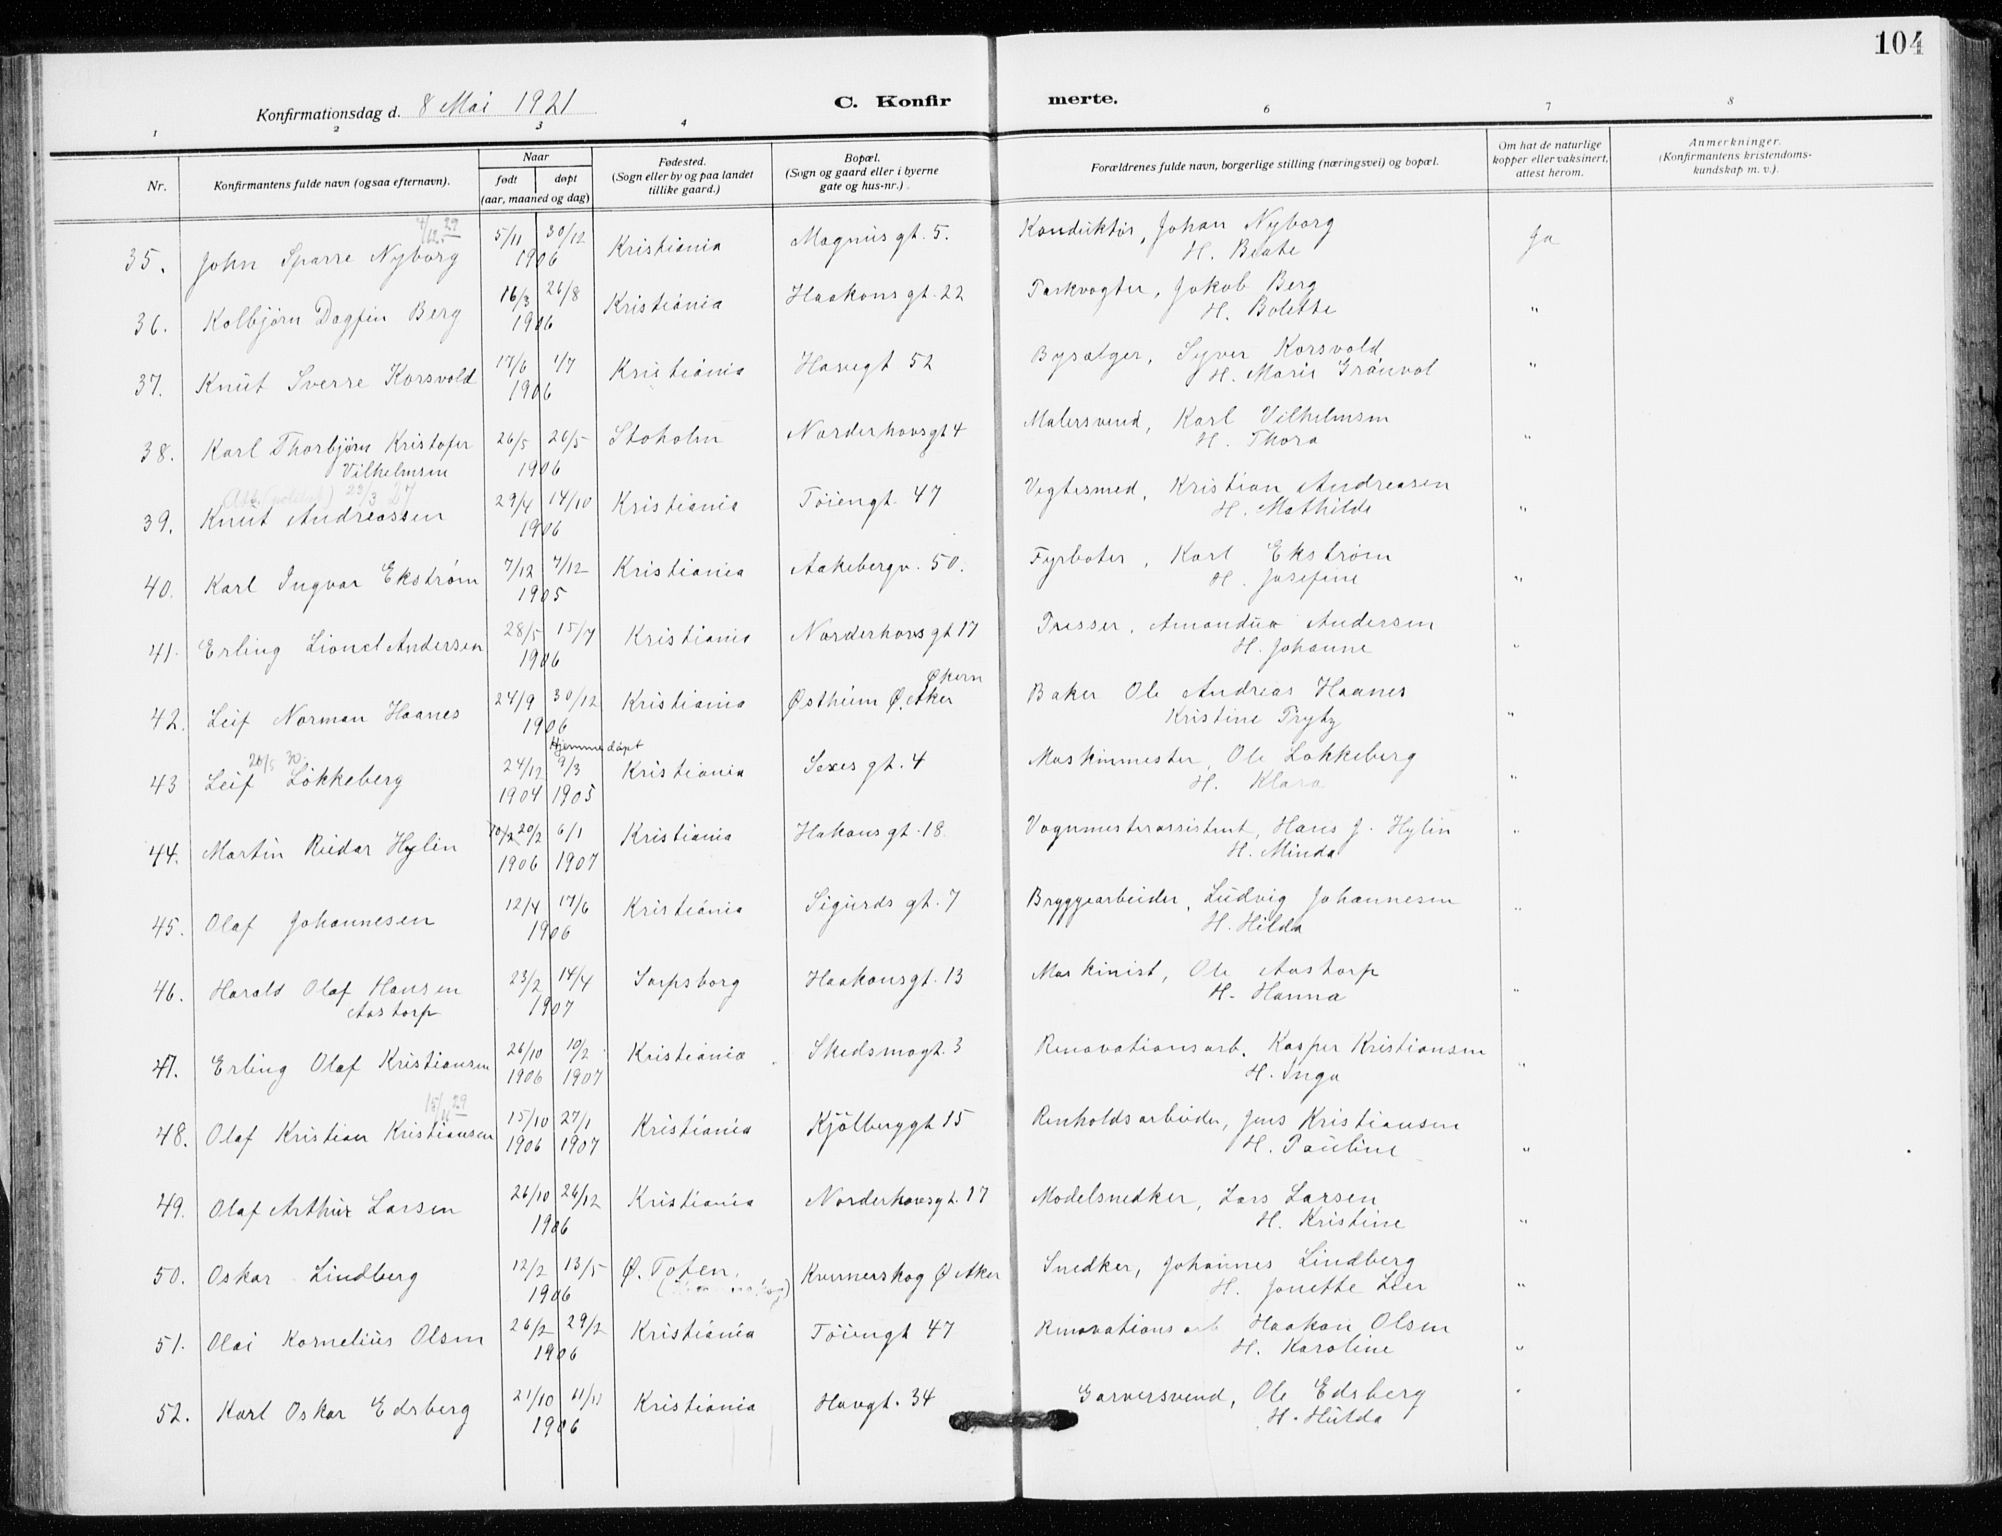 104
Konfirmationsdag d. 8 Mai 1921
C. Konfir merte.
1 2 3 4 6 7 8
Nr.
Konfirmantens fulde navn (ogsaa efternavn).
Naar
født døpt
(aar, maaned og dag)
Fødested.
(Sogn eller by og paa landet
tillike gaard.)
Bopæl.
(Sogn og gaard eller i byerne
gate og hus-nr.)
Forældrenes fulde navn, borgerlige stilling (næringsvei) og bopæl.
Om hat de naturlige
kopper eller vaksinert,
attest herom.
Anmerkninger.
(Konfirmantens kristendoms-
kundskap m. v.).
4/12 29
35. John Sparre Nyborg 5/11 30/12 1906 Kristiania Magnus gt. 5. Konduktör, Johan Nyborg Ja
H. Beate
36. Kolbjörn Dagfin Berg 16/3 26/8 1906 Kristiania Haakons gt. 22 Parkvogter, Jakob Berg "
H. Bolette
37. Knut Sverre Korsvold 17/6 1/7 1906 Kristiania Havegt 52 Bysælger, Syver Korsvold "
H. Marie Grönvol
38. Karl Thorbjörn Kristofer 26/5 26/5 1906 Stoholm Norderhovsgt 4 Malersvend, Karl Vilhelmsen "
Vilhelmsen H. Thora
23/3 27
39. Knut Andreassen 29/4 14/10 1906 Kristiania Töiengt. 47 Vegtesmed, Kristian Andreasen "
H. Mathilde
40. Karl Ingvar Ekström 7/12 7/12 1905 Kristiania Aakebergv. 50. Fyrbøter, Karl Ekström "
H. Josefine
41. Erling Lionel Andersen 28/5 15/7 1906 Kristiania Norderhovsgt 17 Presser, Amandus Andersen "
H. Johanne
Økern
42. Leif Norman Haanes 24/9 30/12 1906 Kristiania Østheim Ø. Aker Baker Ole Andreas Haanes "
Kristine Tryty
Hjemmedöpt
26/5 30
43 Leif Lökkeberg 24/12 1904 9/3 1905 Kristiania Sexes gt. 4 Maskinmester, Ole Lökkeberg "
H. Klara
44. Martin Reidar Hylin 20/2 20/2 1906 6/1 1907 Kristiania Hakons gt. 18. Vognmesterassistent, Hans J. Hylin "
H. Minda
45. Olaf Johannesen 12/4 17/6 1906 Kristiania Sigurds gt. 7 Bryggearbeider, Ludvig Johannesen "
H. Hilda
46. Harald Olaf Hansen 23/2 14/4 1907 Sarpsborg Haakonsgt. 13 Maskinist, Ole Aastorp "
Aastorp H. Hanna
47. Erling Olaf Kristiansen 26/10 1906 10/2 1907 Kristiania Skedsmogt. 3 Renovationsarb. Kasper Kristiansen "
H. Inga
15/11 29
48. Olaf Kristian Kristiansen 15/10 1906 27/1 1907 Kristiania Kjölberggt 15 Renholdsarbeider, Jens Kristiansen "
H. Pauline
49. Olaf Arthur Larsen 26/10 26/12 1906 Kristiania Norderhovsgt. 17 Modelsnedker, Lars Larsen "
H. Kristine
50. Oskar Lindberg 12/2 13/5 1906 Ø. Toten. Kvernerskog Ø Aker Snedker, Johannes Lindberg "
H. Jonette Lier
51. Olai Kornelius Olsen 26/2 29/2 1906 Kristiania Töiengt 47 Renovationsarb Haakon Olsen "
H. Karoline
52. Karl Oskar Edsberg 21/10 11/11 1906 Kristiania Havgt. 34 Garversvend, Ole Edsberg "
H. Hulda